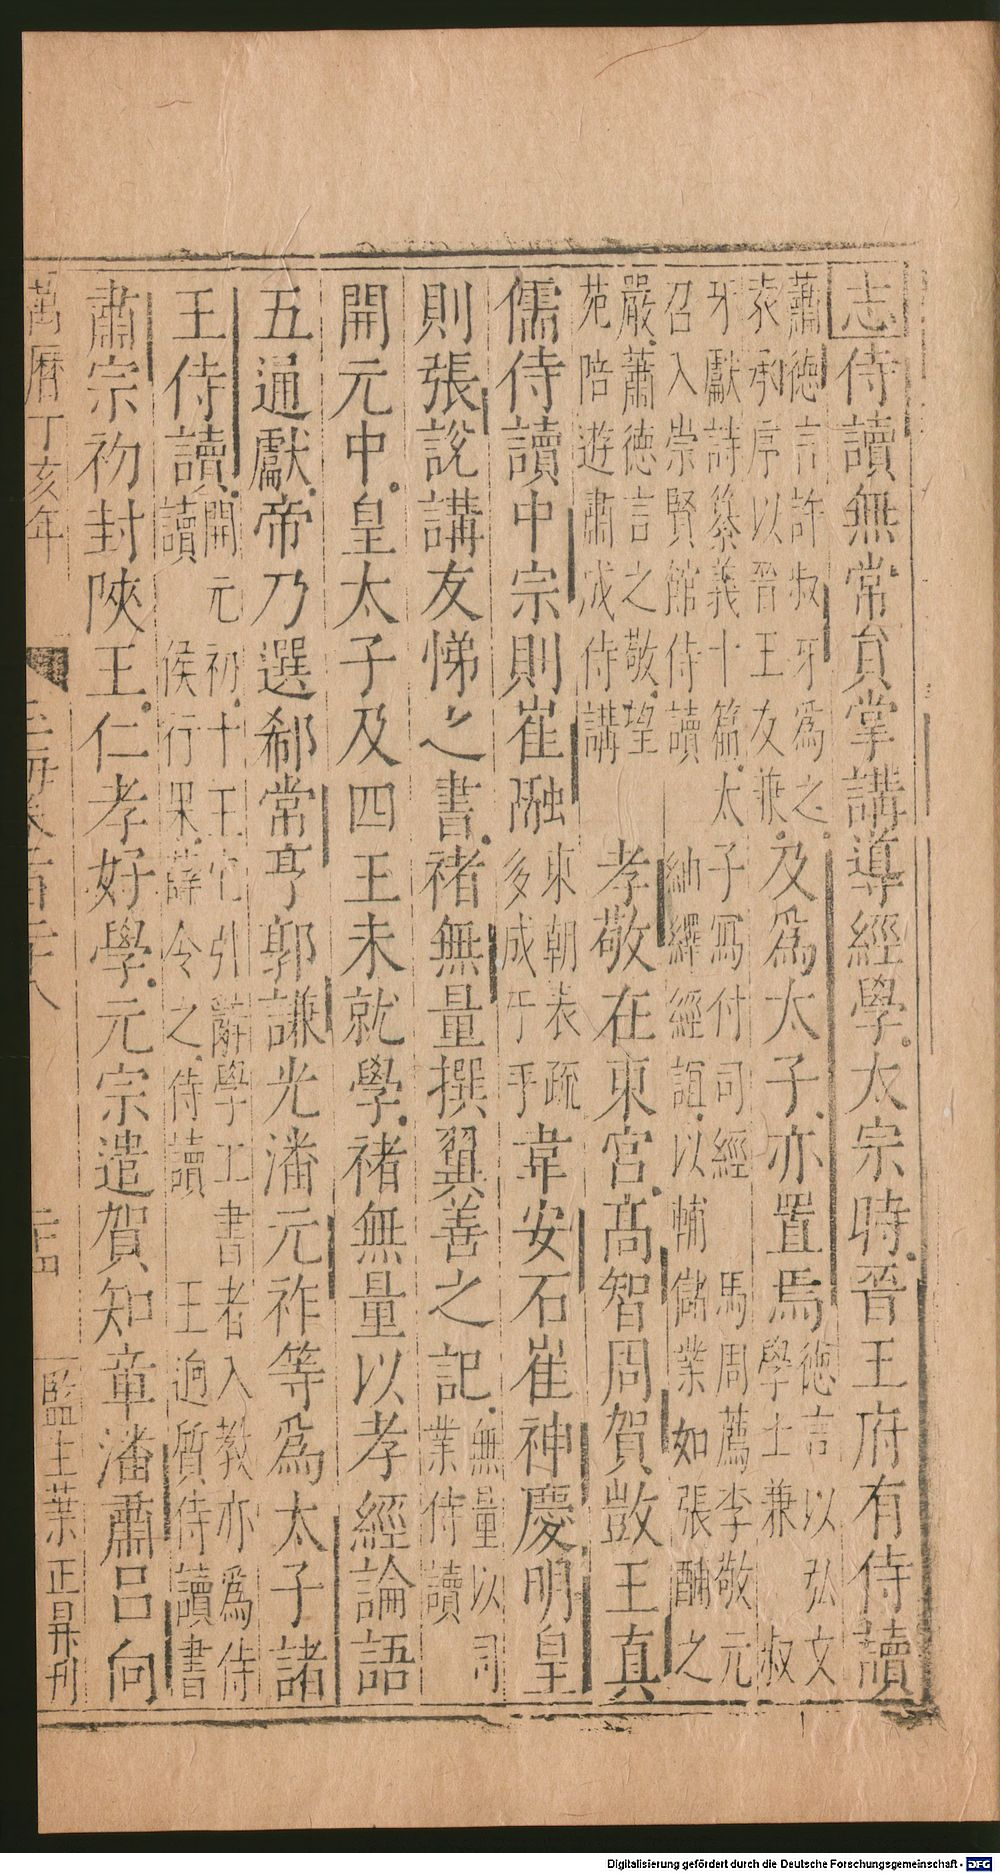 志侍讀無常員掌講導經學太宗時晉王府有侍讀
蕭德言許叔牙爲之
衮承序以晉王友兼
及爲太子亦置焉
德言以弘文
學士兼叔
牙獻詩纂義十篇太子寫付司經 馬周薦李敬元
召入崇賢館侍讀 紬繹經誼以輔儲業如張酺之
嚴蕭德言之敬望
苑陪遊肅成侍講
孝敬在東宮高智周賀敱王真
儒侍讀中宗則崔融
東朝表疏
多成于手
韋安石崔神慶明皇
則張說講友悌之書褚無量撰翼善之記
無量以司
業侍讀
開元中皇太子及四王未就學褚無量以孝經論語
五通獻帝乃選郗常亨郭謙光潘元祚等爲太子諸
王侍讀
開元初十王宅引辭學工書者入教亦爲侍
讀 侯行果薛令之侍讀 王迥質侍讀書
肅宗初封陝王仁孝好學元宗遣賀知章潘肅呂向
萬曆丁亥年
玉海卷一百二十八
二十四
監生葉正昇刊
Digitalisierung gefördert durch die Deutsche Forschungsgemeinschaft - DFG